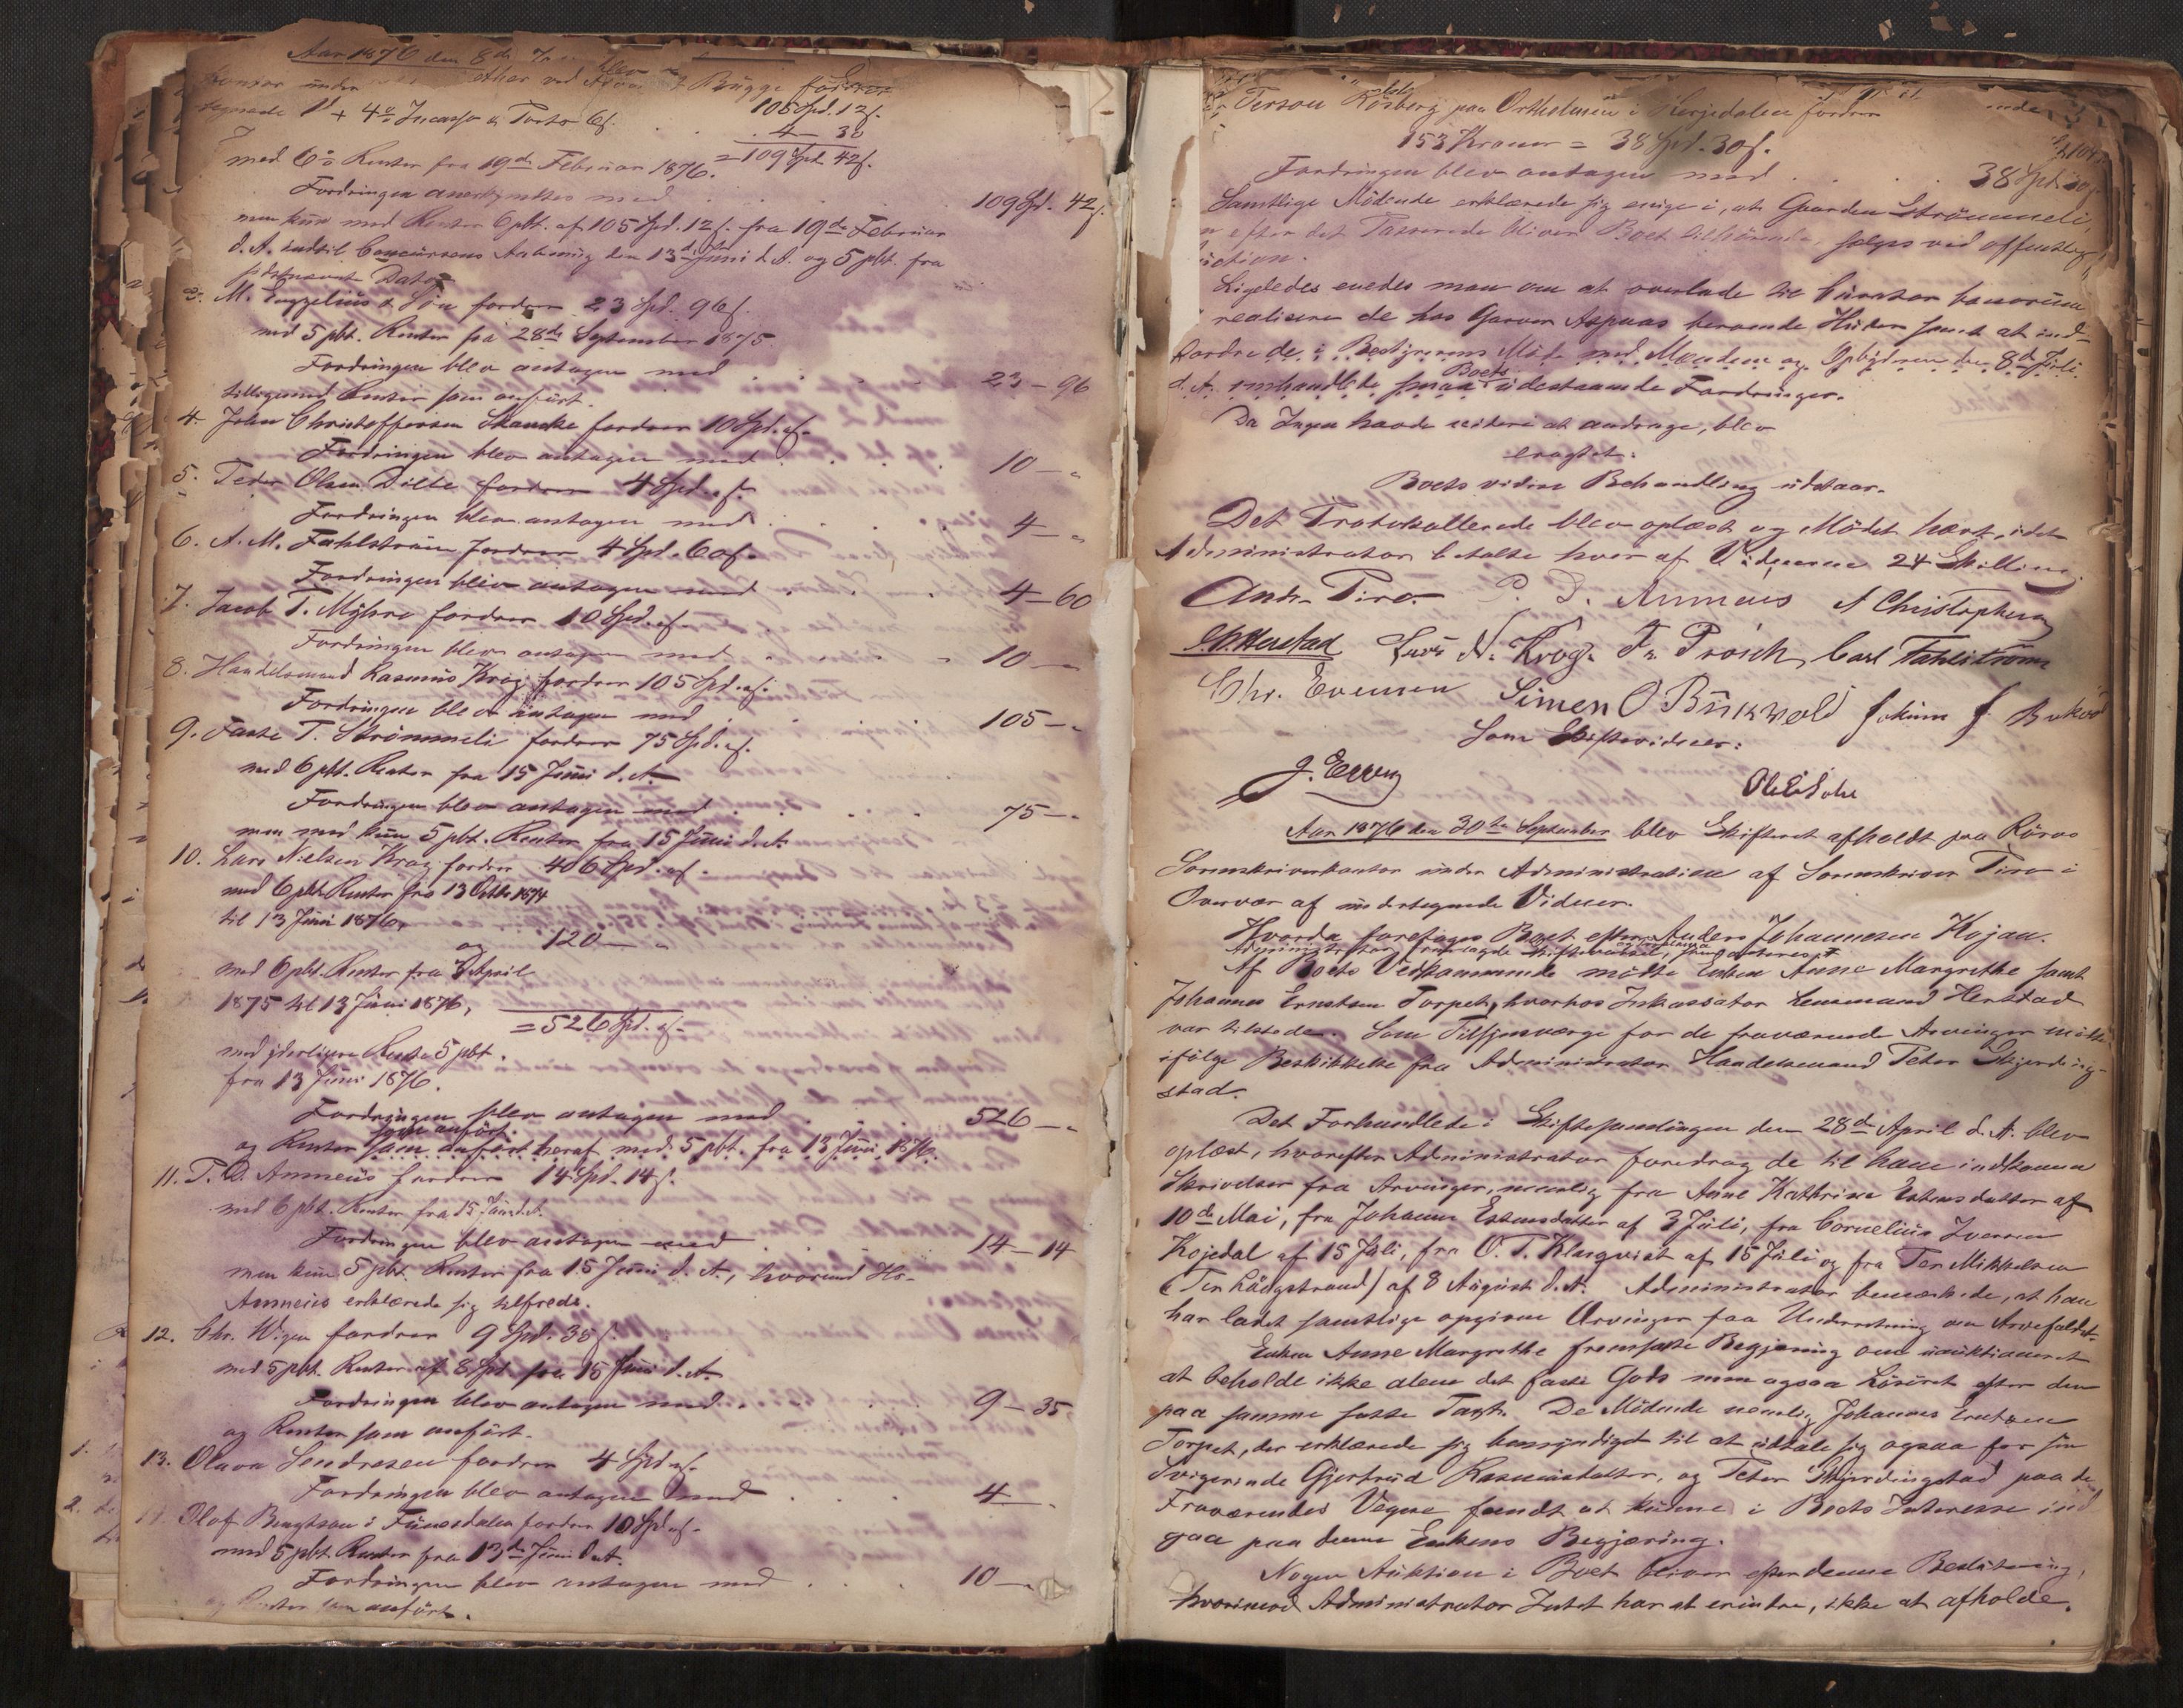 Aar 1876 den 8de
ved Bugge fordrer
105 Spd. 12 s.
tegnede 1d + 4% Incasso & Porto 6 s. . . 4 - 30
med 6% Renter fra 19de Februar 1876. = 109 Spd. 42 s.
Fordringen anerkjendtes med . . . 109 Spd. 42 s.
men kun med Renter 6 pbt. af 105 Spd. 12 s. fra 19de Februar
d. A. indtil Concursens Aabning den 13de Juni d. A. og 5 pbt. fra
sidstnævnt Dato
3. M. Engzelius & Søn fordrer 23 Spd. 96 s.
med 5 pbt. Renter fra 28de September 1875.
Fordringen blev antagen med . . . 23 - 96
tilligemed Renter som anført.
4. John Christoffersen Skancke fordrer 10 Spd. " s.
Fordringen blev antagen med . . . 10 - "
5. Peder Olsen Dille fordrer 4 Spd. " s.
Fordringen blev antagen med . . . 4 - "
6. A. M. Fahlstrøm fordrer 4 Spd. 60 s.
Fordringen blev antagen med . . . 4 - 60
7. Jacob T. Myhre fordrer 10 Spd. " s.
Fordringen blev antagen med . . . 10 - "
8. Handelsmand Rasmus Krog fordrer 105 Spd. " s.
Fordringen blev antagen med . . . 105 - "
9. Faste T. Strømmeli fordrer 75 Spd. " s.
med 6 pbt. Renter fra 15 Juni d. A.
Fordringen blev antagen med . . . 75 - "
men med kun 5 pbt. Renter fra 15 Juni d. A.
10. Lars Nielsen Krog fordrer 406 Spd. " s.
med 6 pbt. Renter fra 13 Octbr 1874
til 13 Juni 1876,
og 120 - "
med 6 pbt. Renter fra April
1875 til 13 Juni 1876,
= 526 Spd. " s.
med yderligere Rente 5 pbt.
fra 13 Juni 1876.
Fordringen blev antagen med . . . 526 - "
som anført.
og Renter som anført heraf med 5 pbt. fra 13 Juni 1876.
11. P. D. Anneus fordrer 14 Spd. 14 s.
med 6 pbt. Renter fra 15 Juni d. A.
Fordringen blev antagen med . . . 14 - 14
men kun 5 pbt. Renter fra 15 Juni d. A., hvormed Hr.
Anneus erklærede sig tilfreds.
12. Chr. Wigen fordrer 9 Spd. 35 s.
med 5 pbt. Renter af 8 Spd. fra 15 Juni d. A.
Fordringen blev antagen med . . . 9 - 35
og Renter som anført.
13. Olava Sendresen fordrer 4 Spd. " s.
Fordringen blev antagen med . . . 4 - "
Olof Bengtson i Funesdalen fordrer 10 Spd. " s.
med 5 pbt. Renter fra 13de Juni d. A.
Fordringen blev antagen med . . . 10 - "
og Renter som anført.
Rösberg paa i Herjedalen fordrer
153 Kroner = 38 Spd. 30 s.
Fordringen blev antagen med . . . 38 Spd. 30 s.
Samtlige Mödende erklærede sig enige i, at Gaarden Strömmeli,
efter det Passerede bliver Boet tilhörende, sælges ved offentlig
Auction.
Ligeledes enedes man om at overlade til Curator bonorum
realisere de hos Garver Aspaas beroende Huder samt at ind-
fordre de i Bestyrerens Möde med Manden og den 8de Juli
Boets
d. A. omhandlede smaa udestaaende Fordringer.
Da Ingen havde videre at andrage, blev
eragtet:
Boets videre Behandling udstaar.
Det Protokollerede blev oplæst og Mödet hævet, idet
Administrator betalte hver af Vidnerne 24 Skilling.
Andr. Piro. P. D. Anneus A Christophersen
Herstad Lars N. Krog. Fr. Prösch, Carl Fahlström
Chr. Evensen Simen O Bukvold Jokum J. Bukvold
Som Skiftevidner:
J. Engen
Aar 1876 den 30te September blev Skifteret afholdt paa Röros
Sorenskriverkontor under Administration af Sorenskriver Piro i
Overvær af undertegnede Vidner.
Hvorda foretoges Boet efter Anders Johannesen Kojan.
Administrator fremlagde
Af Boets Vedkommende mödte Enken Anne Margrethe samt
Johannes Erntsen Torpet, hvorhos Inkassator Lensmand Herstad
var tilstede. Som Tilsynsværge for de fraværende Arvinger mödte
ifölge Beskikkelse fra Administrator Handelsmand Peter Skjerding-
stad.
Det Forhandlede i Skiftesamlingen den 28de April d. A. blev
oplæst, hvorefter Administrator foredrog de til ham indkomne
Skrivelser fra Arvinger, nemlig fra Anne Kathrine Estensdatter af
10de Mai, fra Johanna Estensdatter af 3 Juli, fra Cornelius Iversen
Kojedal af 15 Juli, fra O. T. Klinqvist af 15 Juli og fra Per Mikkelsen
(Per Långstrand) af 8 August d. A. Administrator bemærkede, at han
har ladet samtlige opgivne Arvinger faa Underretning om Arvefaldet.
Enken Anne Margrethe fremsatte Begjæring om uauktioneret
at beholde ikke alene det faste Gods men ogsaa Lösöret efter den
paa samme satte Taxt. De Mödende nemlig Johannes Erntsen
Torpet, der erklærede sig bemyndiget til at udtale sig ogsaa for sin
Svigerinde Gjertrud Rasmusdatter, og Peter Skjerdingstad paa de
Fraværendes Vegne fandt at kunne i Boets Interesse ind
gaa paa denne Enkens Begjæring.
Nogen Auktion i Boet bliver efter denne Beslutning,
hvorimod Administrator Intet har at erindre, ikke at afholde.